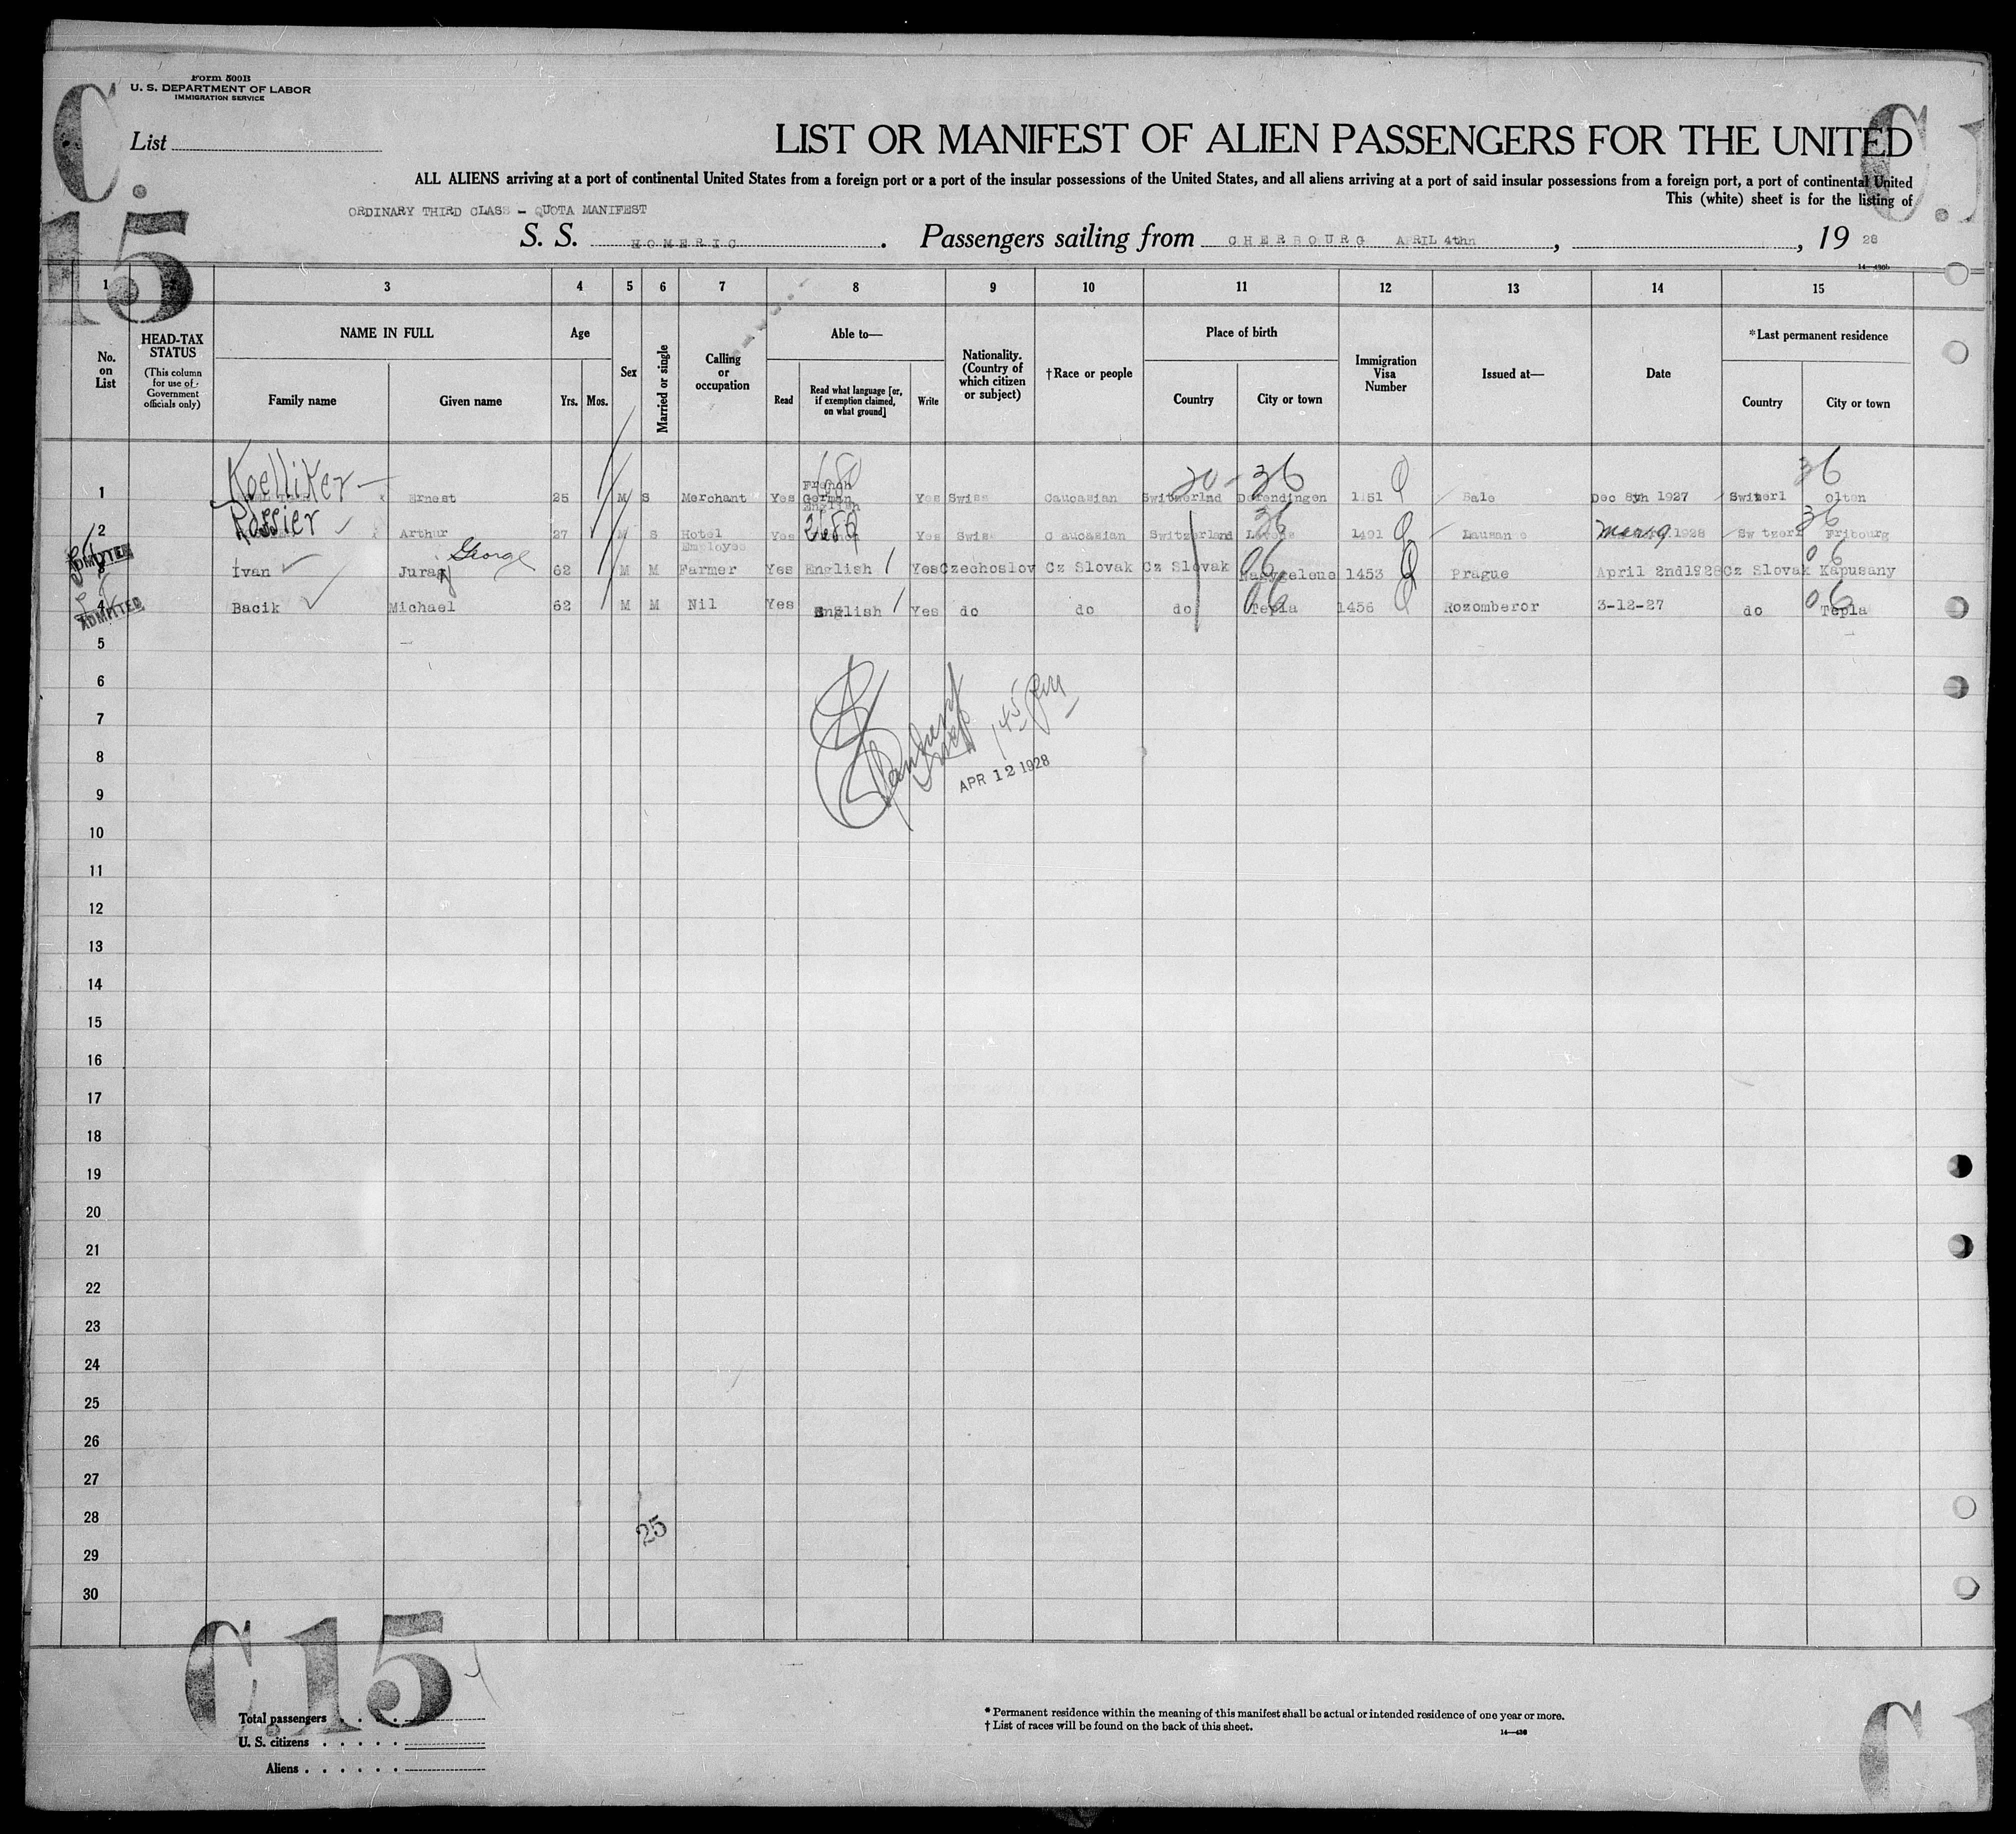 Form 500B
U. S. DEPARTMENT OF LABOR
IMMIGRATION SERVICE
C.
15
C.1
List
LIST OR MANIFEST OF ALIEN PASSENGERS FOR THE UNITED
ALL ALIENS arriving at a port of continental United States from a foreign port or a port of the insular possessions of the United States, and all aliens arriving at a port of said insular possessions from a foreign port, a port of continental United
This (white) sheet is for the listing of
ORDINARY THIRD CLASS - QUOTA MANIFEST
S. S. HOMERIC. Passengers sailing from CHERBOURG APRIL 4thn, , 19 28
14—430b
1 3 4 5 6 7 8 9 10 11 12 13 14 15
No. on List
HEAD-TAX STATUS
(This column for use of Government officials only)
NAME IN FULL
Family name Given name
Age
Yrs. Mos.
Sex
Married or single
Calling or occupation
Able to—
Read
Read what language [or, if exemption claimed, on what ground]
Write
Nationality. (Country of which citizen or subject)
†Race or people
Place of birth
Country City or town
Immigration Visa Number
Issued at—
Date
*Last permanent residence
Country City or town
20 - 36 36
1 Koelliker Ernest 25 M S Merchant Yes French German English Yes Swiss Caucasian Switzerlnd Derendingen 1151 Q Bale Dec 8yh 1927 Switzerl Olten
2 Rossier Arthur 27 M S Hotel Employee Yes Yes Swiss C aucasian Switzerland 36 1491 Q Lausanne 1928 Sw tzerl 36 Fribourg
ADMITTED
3 Ivan Juraj George 62 M M Farmer Yes English Yes Czechoslov Cz Slovak Cz Slovak 06 1453 Q Prague April 2nd1928 Cz Slovak 06 Kapusany
ADMITTED
4 Bacik Michael 62 M M Nil Yes English Yes do do do 06 Tepla 1456 Q Rozomberor 3-12-27 do 06 Tepla
5
6
7
8
APR 12 1928
9
10
11
12
13
14
15
16
17
18
19
20
21
22
23
24
25
26
27
28
25
29
30
C.15
C.1
Total passengers
U. S. citizens
Aliens
* Permanent residence within the meaning of this manifest shall be actual or intended residence of one year or more.
† List of races will be found on the back of this sheet.
14—430